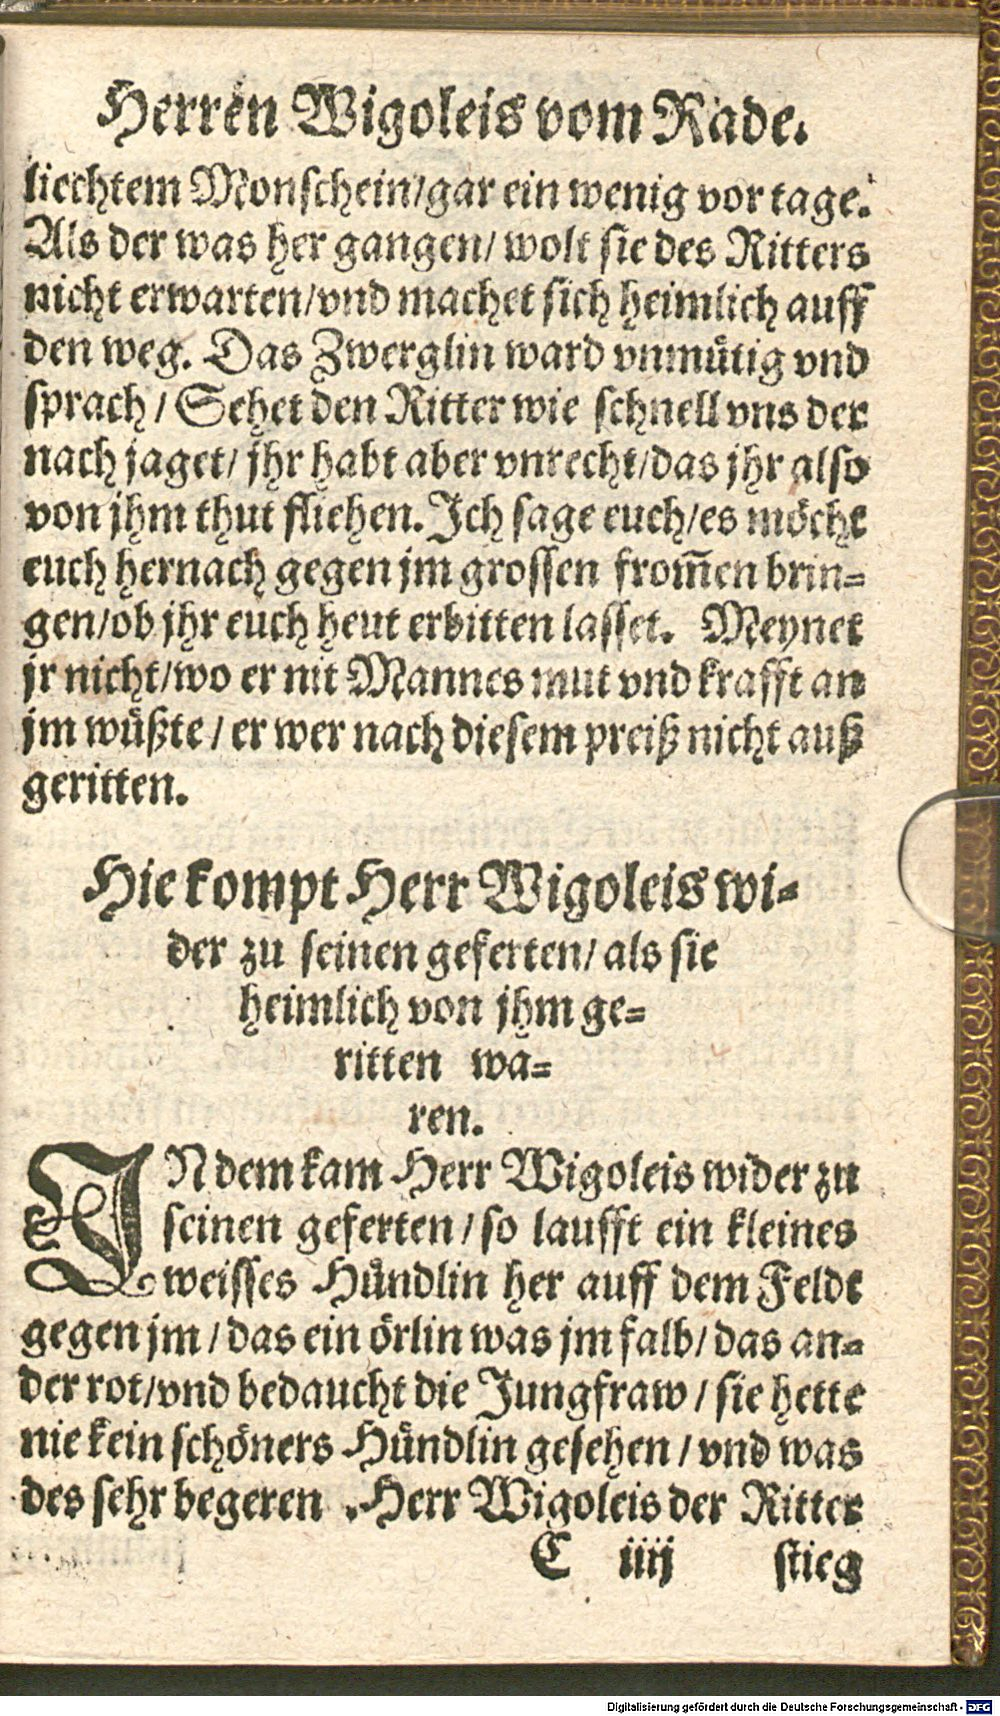 Herren Wigoleis vom Rade.
liechtem Monschein/gar ein wenig vor tage.
Als der was her gangen/ wolt sie des Ritters
nicht erwarten/vnd machet sich heimlich auff
den weg. Das Zwerglin ward vnmütig vnd
sprach / Sehet den Ritter wie schnell vns der
nach jaget/ jhr habt aber vnrecht/das jhr also
von jhm thut fliehen. Ich sage euch/es möcht
euch hernach gegen jm grossen from̃en brin-
gen/ob jhr euch heut erbitten lasset. Meynet
jr nicht/wo er nit Mannes mut vnd krafft an
jm wüßte / er wer nach diesem preiß nicht auß
geritten.
Hie kompt Herr Wigoleis wi-
der zu seinen geferten/ als sie
heimlich von jhm ge-
ritten wa-
ren.
IN dem kam Herr Wigoleis wider zu
seinen geferten / so laufft ein kleines
weisses Hündlin her auff dem Feldt
gegen jm / das ein örlin was jm falb/ das an-
der rot/vnd bedaucht die Jungfraw / sie hette
nie kein schöners Hündlin gesehen / vnd was
des sehr begeren . Herr Wigoleis der Ritter
C iiij stieg
Digitalisierung gefördert durch die Deutsche Forschungsgemeinschaft - DFG